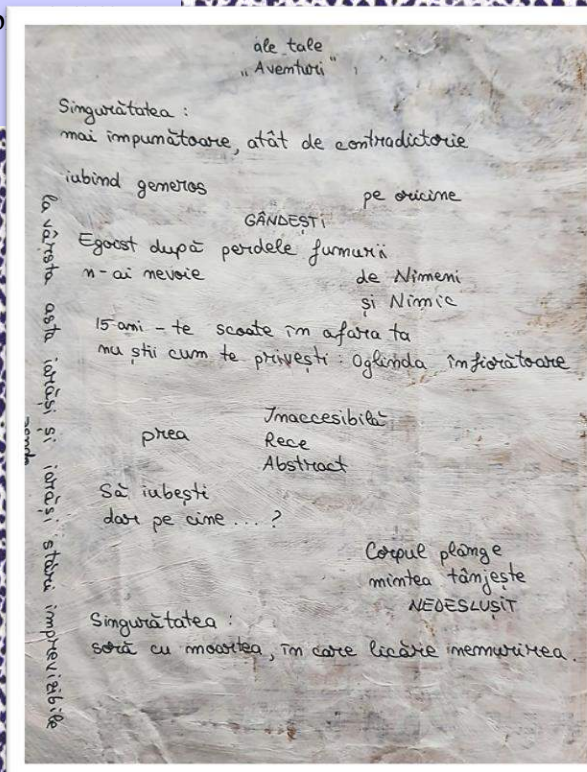 ale tale
„Aventuri”,
Singurătatea :
mai impunătoare, atât de contradictorie
iubind generos pe oricine
GÂNDEȘTI
Egoist după perdele fumurii
n-ai nevoie de Nimeni
și Nimic
15 ani - te scoate în afara ta
nu știi cum te privești : Oglinda înfiorătoare
Inaccesibilă
prea Rece
Abstract
Să iubești
dar pe cine ... ?
Corpul plânge
mintea tânjește
NEDESLUȘIT
Singurătatea :
soră cu moartea, în care licăre nemurirea.
la vârsta asta iarăși și iarăși stări imprevizibile